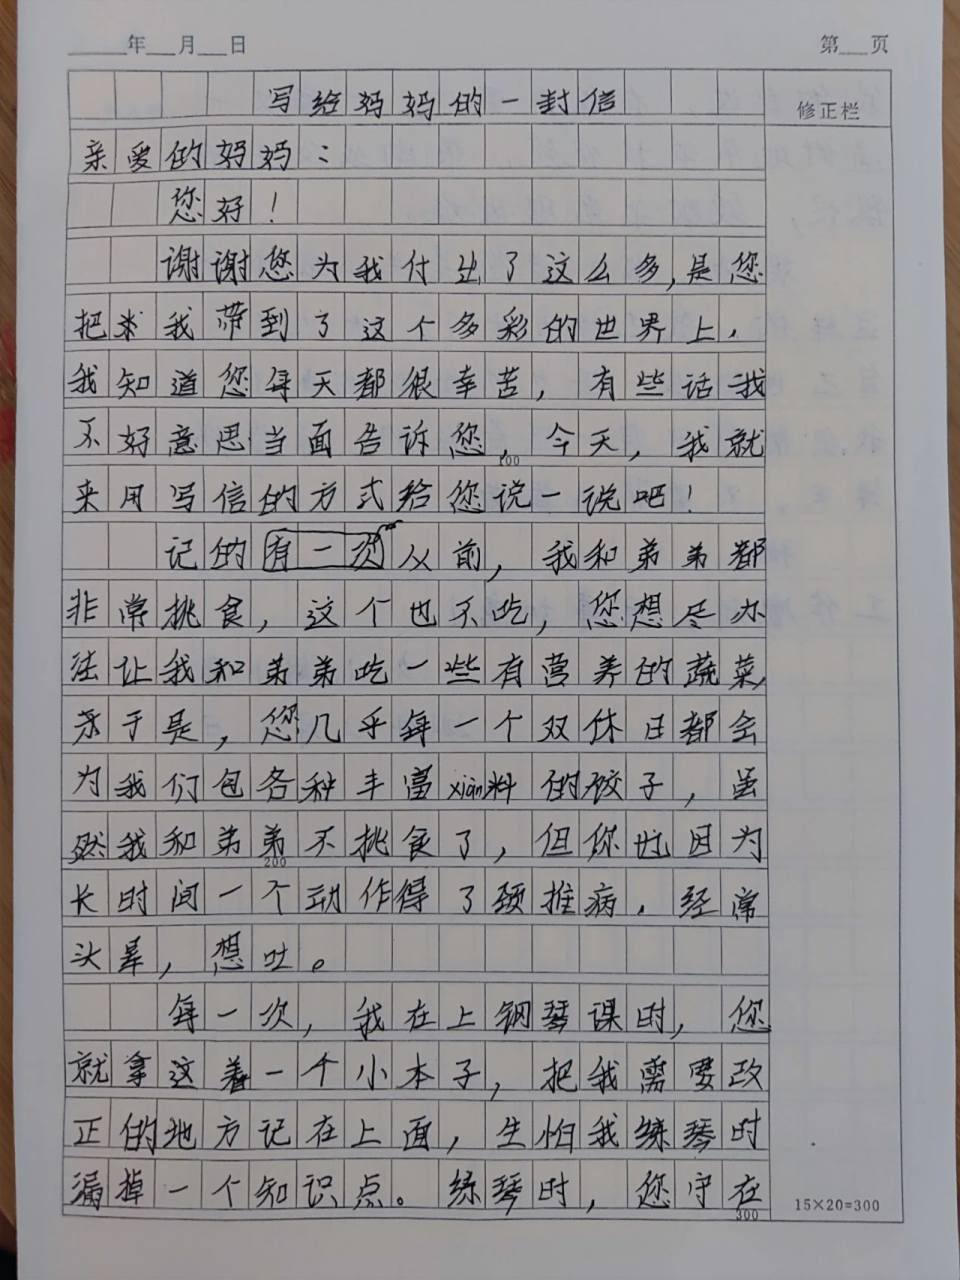 年 月 日 第 页
写给妈妈的一封信
修正栏
亲爱的妈妈：
您好！
谢谢您为我付出了这么多，是您
把我带到了这个多彩的世界上，
我知道您每天都很幸苦，有些话我
不好意思当面告诉您，今天，我就
100
来用写信的方式给您说一说吧！
记的有一次从前，我和弟弟都
非常挑食，这个也不吃，您想尽办
法让我和弟弟吃一些有营养的蔬菜，
于是，您几乎每一个双休日都会
为我们包各种丰富xiàn料的饺子，虽
然我和弟弟不挑食了，但你也因为
200
长时间一个动作得了颈推病，经常
头晕，想吐。
每一次，我在上钢琴课时，您
就拿这着一个小本子，把我需要改
正的地方记在上面，生怕我练琴时
漏掉一个知识点。练琴时，您守在
300
15×20=300